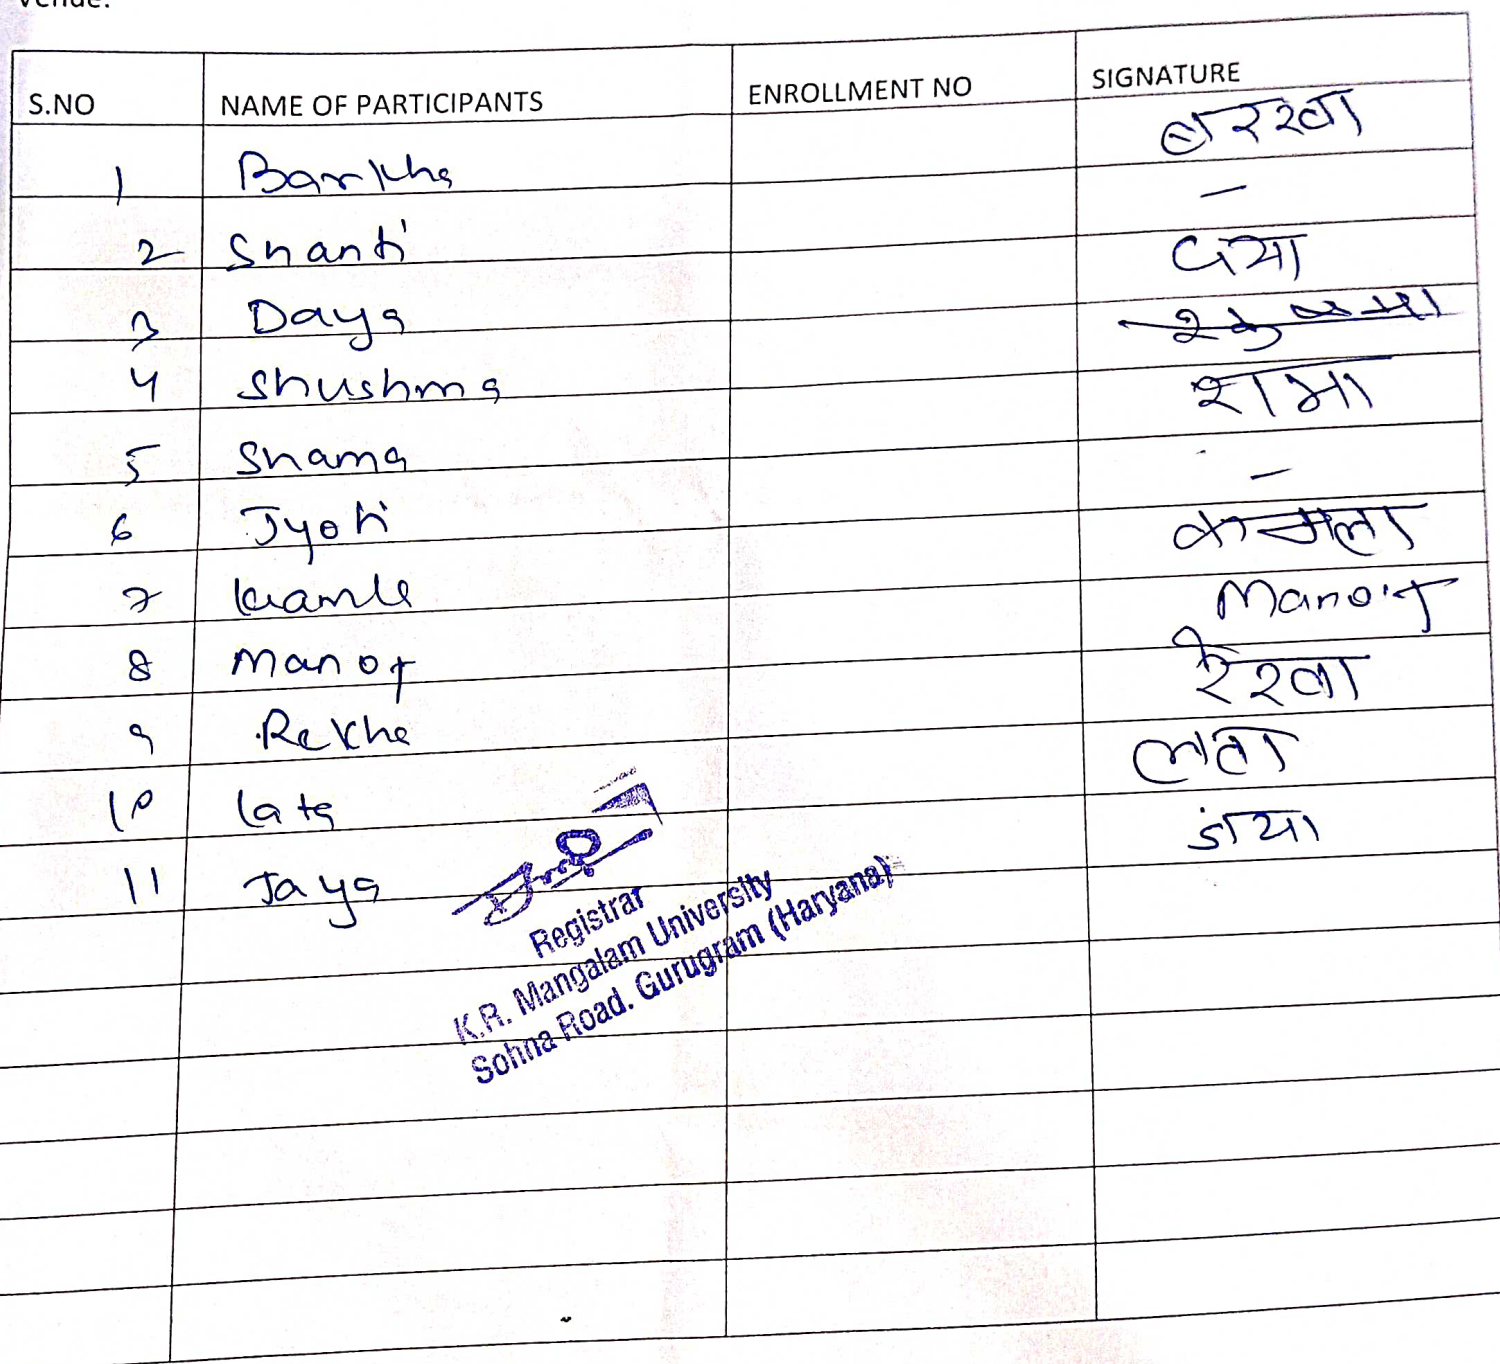 Venue:
S.NO NAME OF PARTICIPANTS ENROLLMENT NO SIGNATURE
1 Barkha बरखा
2 Shanti –
3 Daya दया
4 Shushma
5 Shama शमा
6 Jyoti –
7 Kamla कमला
8 Manoj Manoj
9 Rekha रेखा
10 lata लता
11 Jaya जया
Registrar
K.R. Mangalam University
Sohna Road. Gurugram (Haryana)